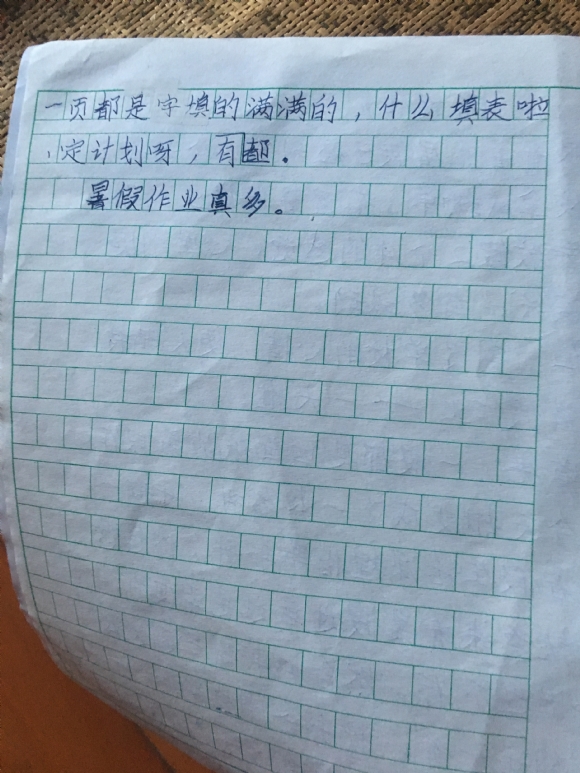 一页都是字填的满满的，什么填表啦
、定计划呀，有都。
暑假作业真多。